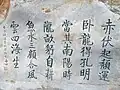 赤伏起頹運
臥龍得孔明
當其南陽時
隴畝躬自耕
魚水三顧合風
雲四海生